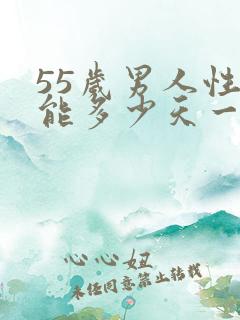 55歲男人性
能多少天一
心心妞
未经同意禁止转载